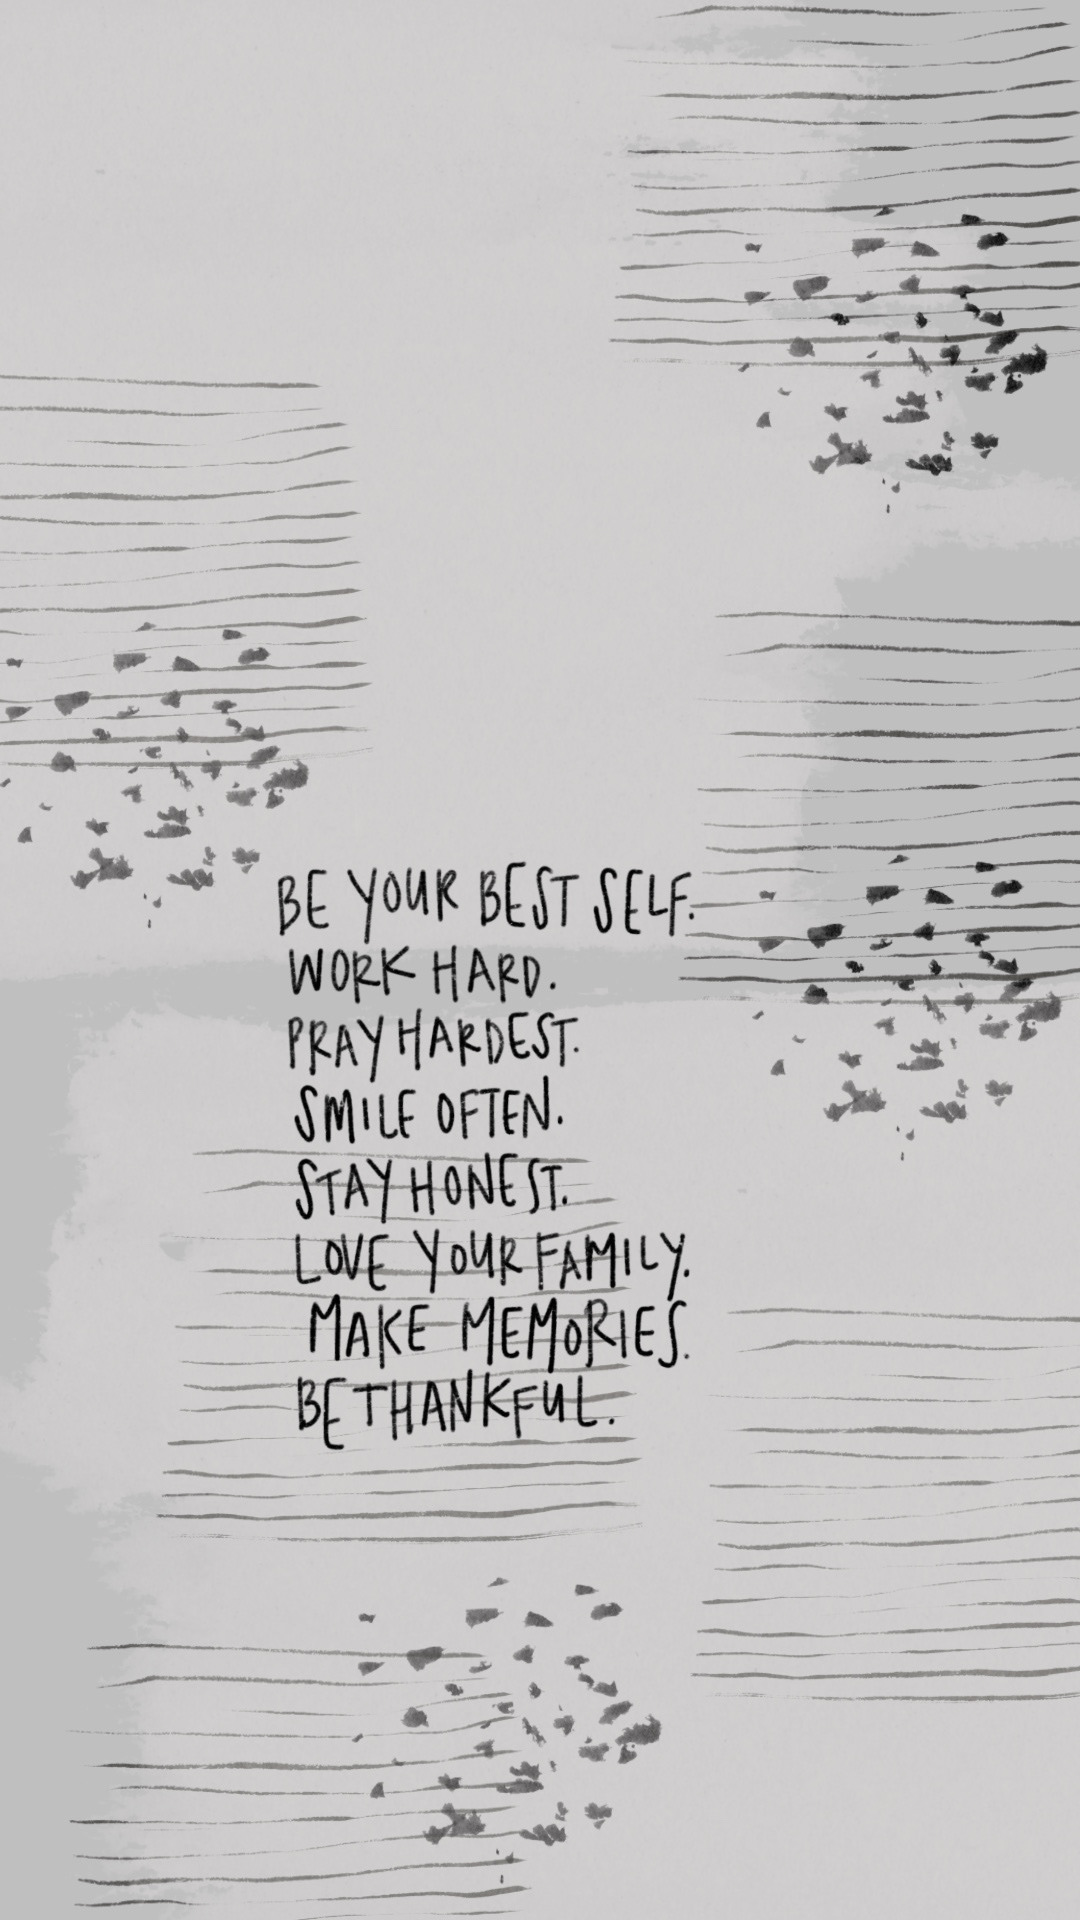 BE YOUR BEST SELF.
WORK HARD.
PRAY HARDEST.
SMILE OFTEN.
STAY HONEST.
LOVE YOUR FAMILY.
MAKE MEMORIES.
BE THANKFUL.